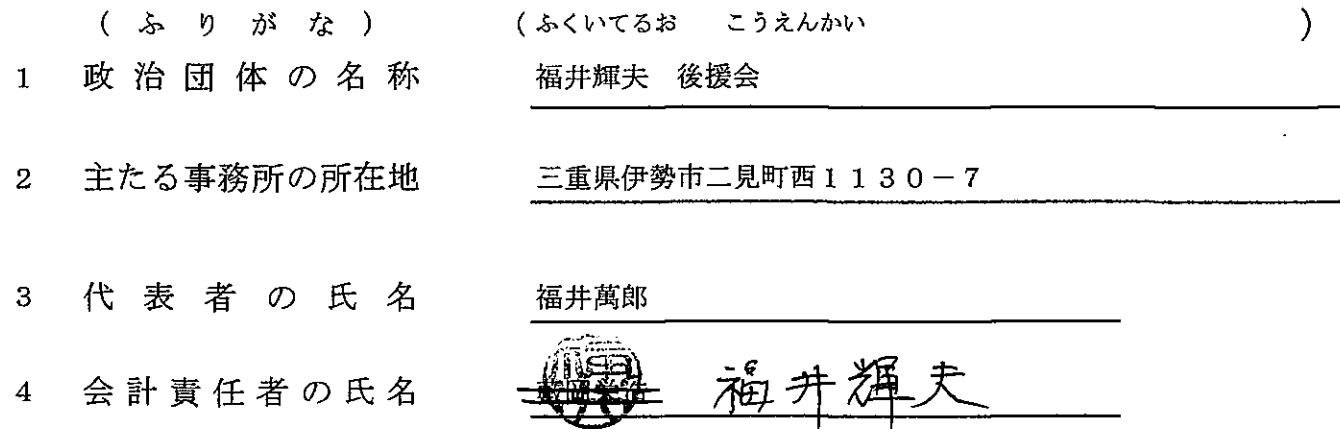 (ふりがな) (ふくいてるお こうえんかい )
1 政治団体の名称 福井輝夫 後援会
2 主たる事務所の所在地 三重県伊勢市二見町西1130-7
3 代表者の氏名 福井萬郎
4 会計責任者の氏名 福井輝夫